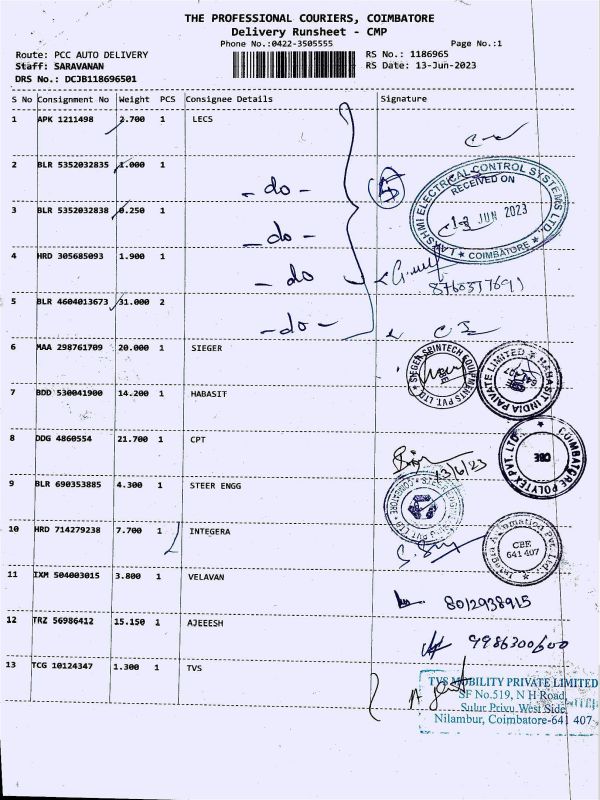 THE PROFESSIONAL COURIERS, COIMBATORE
Delivery Runsheet - CMP
Phone No.:0422-3505555
Page No.:1
Route: PCC AUTO DELIVERY
RS No.: 1186965
Staff: SARAVANAN
RS Date: 13-Jun-2023
DRS No.: DCJB118696501
S No Consignment No Weight PCS Consignee Details Signature
1 APK 1211498 2.700 1 LECS
2 BLR 5352032835 1.000 1 - do -
3 BLR 5352032838 0.250 1 - do -
LAKSHMI ELECTRICAL CONTROL SYSTEMS LTD.
RECEIVED ON
13 JUN 2023
★ COIMBATORE ★
4 HRD 305685093 1.900 1 - do
5 BLR 4604013673 31.000 2 - do -
6 MAA 298761709 20.000 1 SIEGER
SIEGER SPINTECH EQUIPMENTS PVT. LTD
HABASIT INDIA PRIVATE LIMITED
7 BDD 530041900 14.200 1 HABASIT
8 DDG 4860554 21.700 1 CPT
COIMBATORE POLYTEX PVT. LTD.
CBE
13/6/23
9 BLR 690353885 4.300 1 STEER ENGG
10 HRD 714279238 7.700 1 INTEGERA
Integra Automation Pvt. Ltd.
CBE
641 407
11 IXM 504003015 3.800 1 VELAVAN
8012938915
12 TRZ 56986412 15.150 1 AJEEESH
9986300600
13 TCG 10124347 1.300 1 TVS
TVS MOBILITY PRIVATE LIMITED
SF No.519, N H Road,
Sulur Privu, West Side,
Nilambur, Coimbatore-641 407